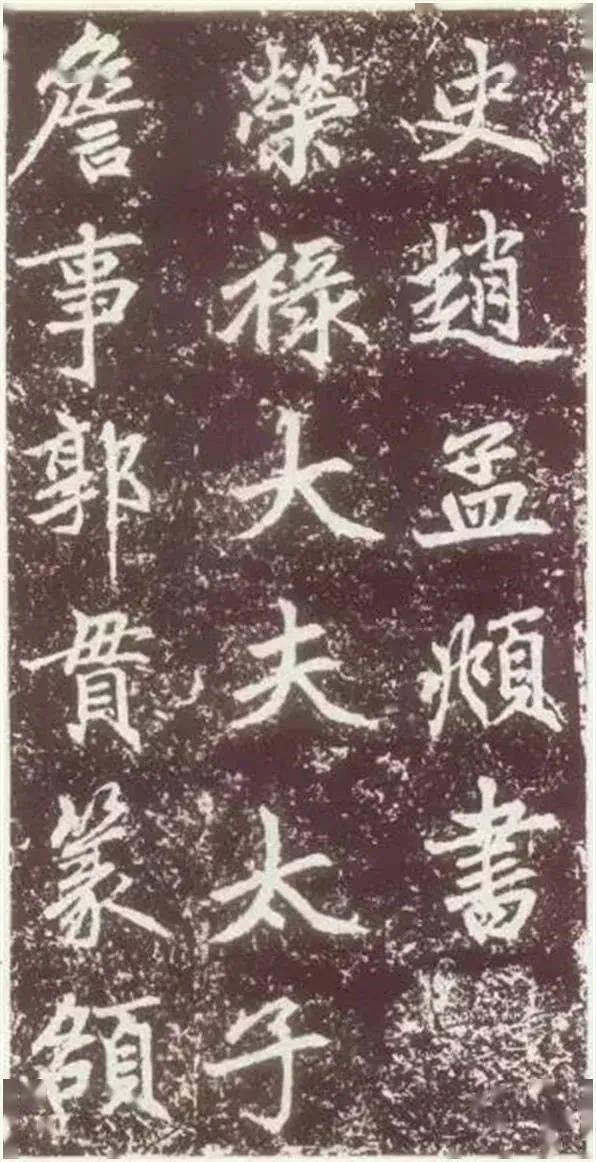 史趙孟頫書
榮祿大夫太子
詹事郭貫篆額